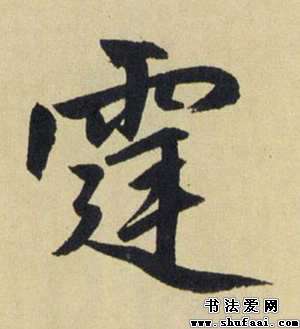 霆
书法爱网
www.shufaai.com